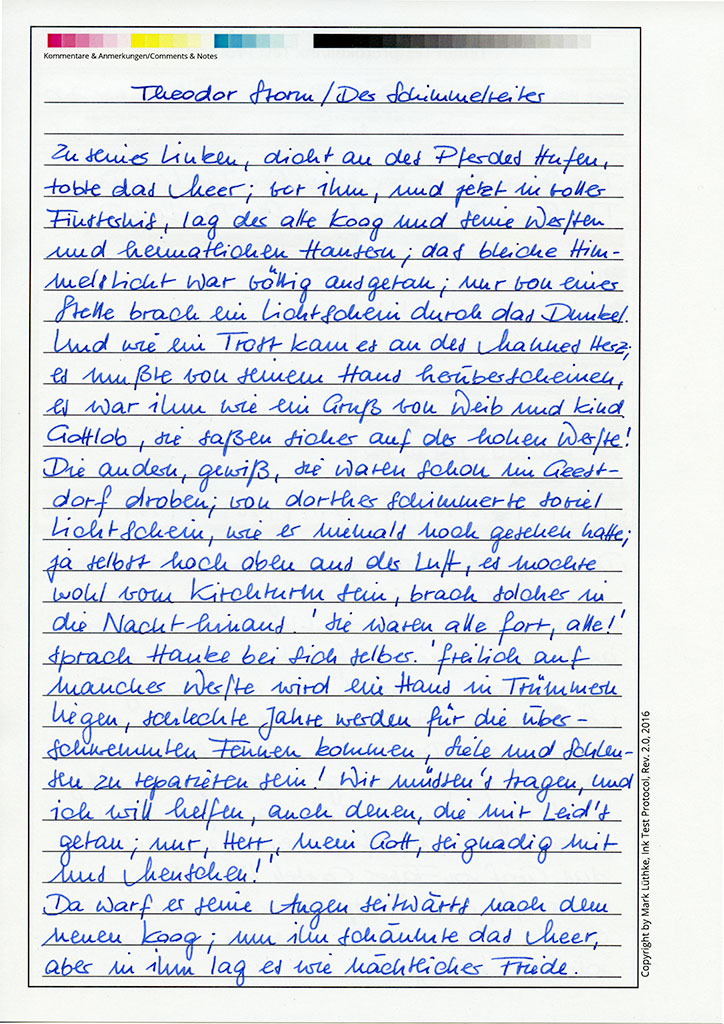 Kommentare & Anmerkungen/Comments & Notes
Theodor Storm / Der Schimmelreiter
Zu seiner Linken, dicht an des Pferdes Hufen,
tobte das Meer; vor ihm, und jetzt in voller
Finsternis, lag der alte Koog und seine Werften
und heimatlichen Häusern; das bleiche Him-
melslicht war völlig ausgetan; nur von einer
Stelle brach ein Lichtschein durch das Dunkel.
Und wie ein Trost kam es an des Mannes Herz;
es mußte von seinem Haus herüberscheinen,
es war ihm wie ein Gruß von Weib und Kind.
Gottlob, sie saßen sicher auf der hohen Werfte!
Die andern, gewiß, sie waren schon im Geest-
dorf droben; von dorther schimmerte soviel
Lichtschein, wie er niemals noch gesehen hatte;
ja selbst hoch oben aus der Luft, es mochte
wohl vom Kirchturm sein, brach solcher in
die Nacht hinaus. 'Sie waren alle fort, alle!'
sprach Hauke bei sich selber. 'freilich auf
mancher Werfte wird ein Haus in Trümmern
liegen, schlechte Jahre werden für die über-
schwemmten Fennen kommen, Siele und Schleu-
sen zu reparieren sein! Wir müssen's tragen, und
ich will helfen, auch denen, die mir Leid's
getan; nur, Herr, mein Gott, sei gnädig mit
uns Menschen!'
Da warf er seine Augen seitwärts nach dem
neuen Koog; um ihn schäumte das Meer,
aber in ihm lag es wie nächtlicher Friede.
Copyright by Mark Lüthke, Ink Test Protocol, Rev. 2.0, 2016